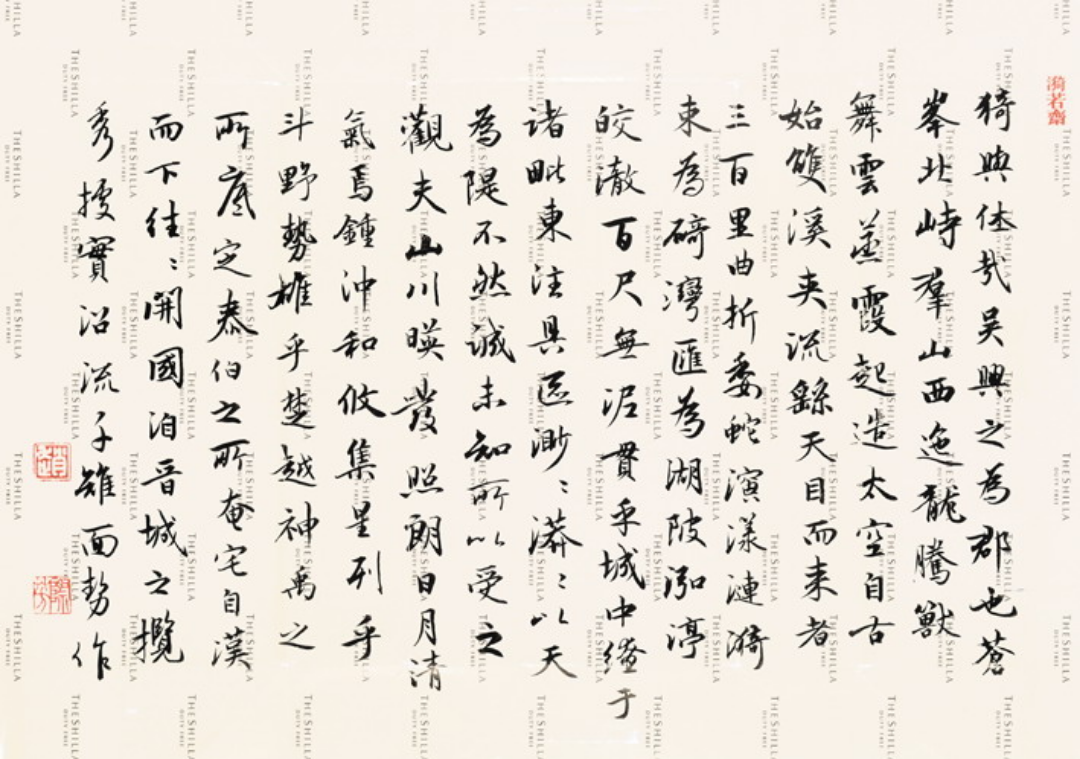 漪若齋
猗與休哉吳興之為郡也蒼
峯北峙羣山西迤龍騰獸
舞雲蒸霞起造太空自古
始雙溪夾流繇天目而来者
三百里曲折委蛇演漾漣漪
東為碕灣匯為湖陂泓渟
皎澈百尺無泥貫乎城中繚于
诸毗東注具區渺〻漭〻以天
為隄不然誠未知所以受之
觀夫山川暎發照朗日月清
氣焉鍾沖和攸集星列乎
斗野勢雄乎楚越神禹之
所底定泰伯之所奄宅自漢
而下往〻開國洎晋城之攬
秀據實沿流千雉面勢作
THE SHILLA
DUTY FREE